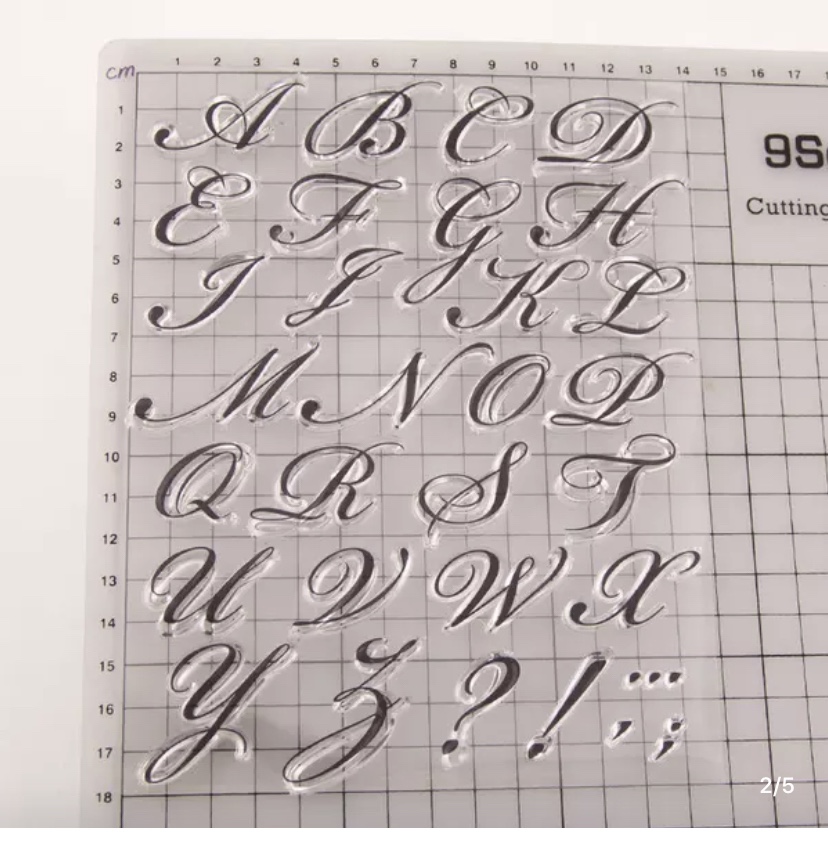 1 2 3 4 5 6 7 8 9 10 11 12 13 14 15 16 17
cm
1
2
3
4
5
6
7
8
9
10
11
12
13
14
15
16
17
18
A B C D
E F G H
I J K L
M N O P
Q R S T
U V W X
Y Z ? ! ...
, ;
Cutting
2/5